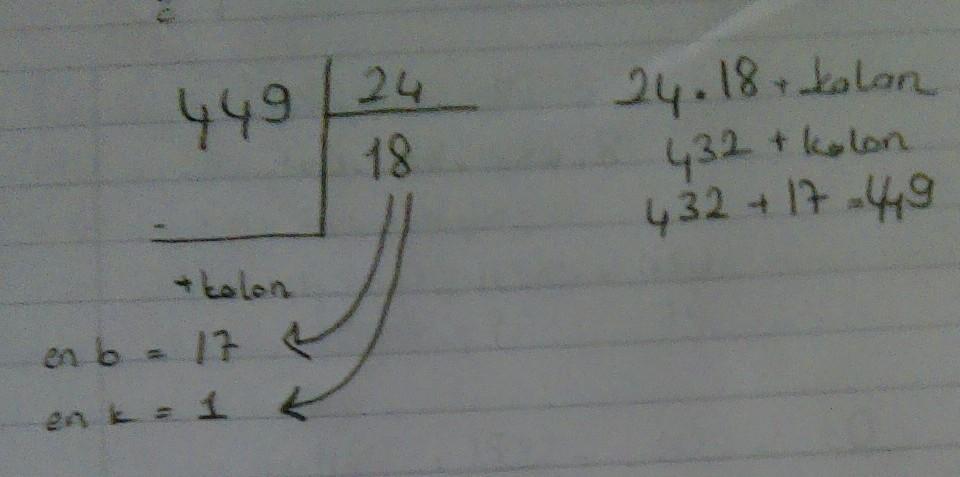 449 24
18
+kalan
en b = 17
en k = 1
24.18 + kalan
432 + kalan
432 + 17 = 449